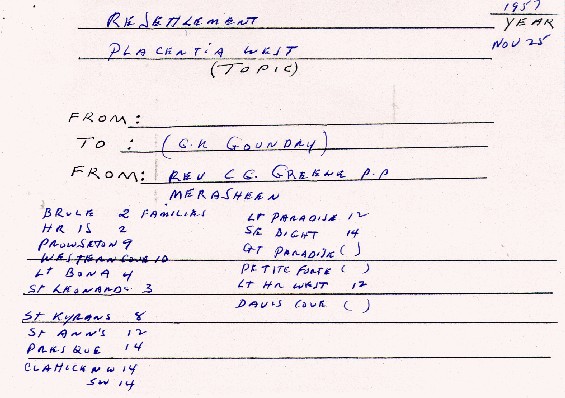 1957
RESETTLEMENT
YEAR
PLACENTIA WEST
NOV 25
(TOPIC)
FROM:
TO : (G.R GOUNDRY)
FROM: REV C G. GREENE P.P
MERASHEEN
BRULE 2 FAMILIES
HR IS 2
PROWSETON 9
WESTERN COVE 10
LT BONA 4
ST LEONARDS 3
ST KYRANS 8
ST ANN'S 12
PRESQUE 14
CLATTICE N W 14
SW 14
LT PARADISE 12
SE BIGHT 14
GT PARADISE ( )
PETITE FORTE ( )
LT HR WEST 12
DAVIS COVE ( )